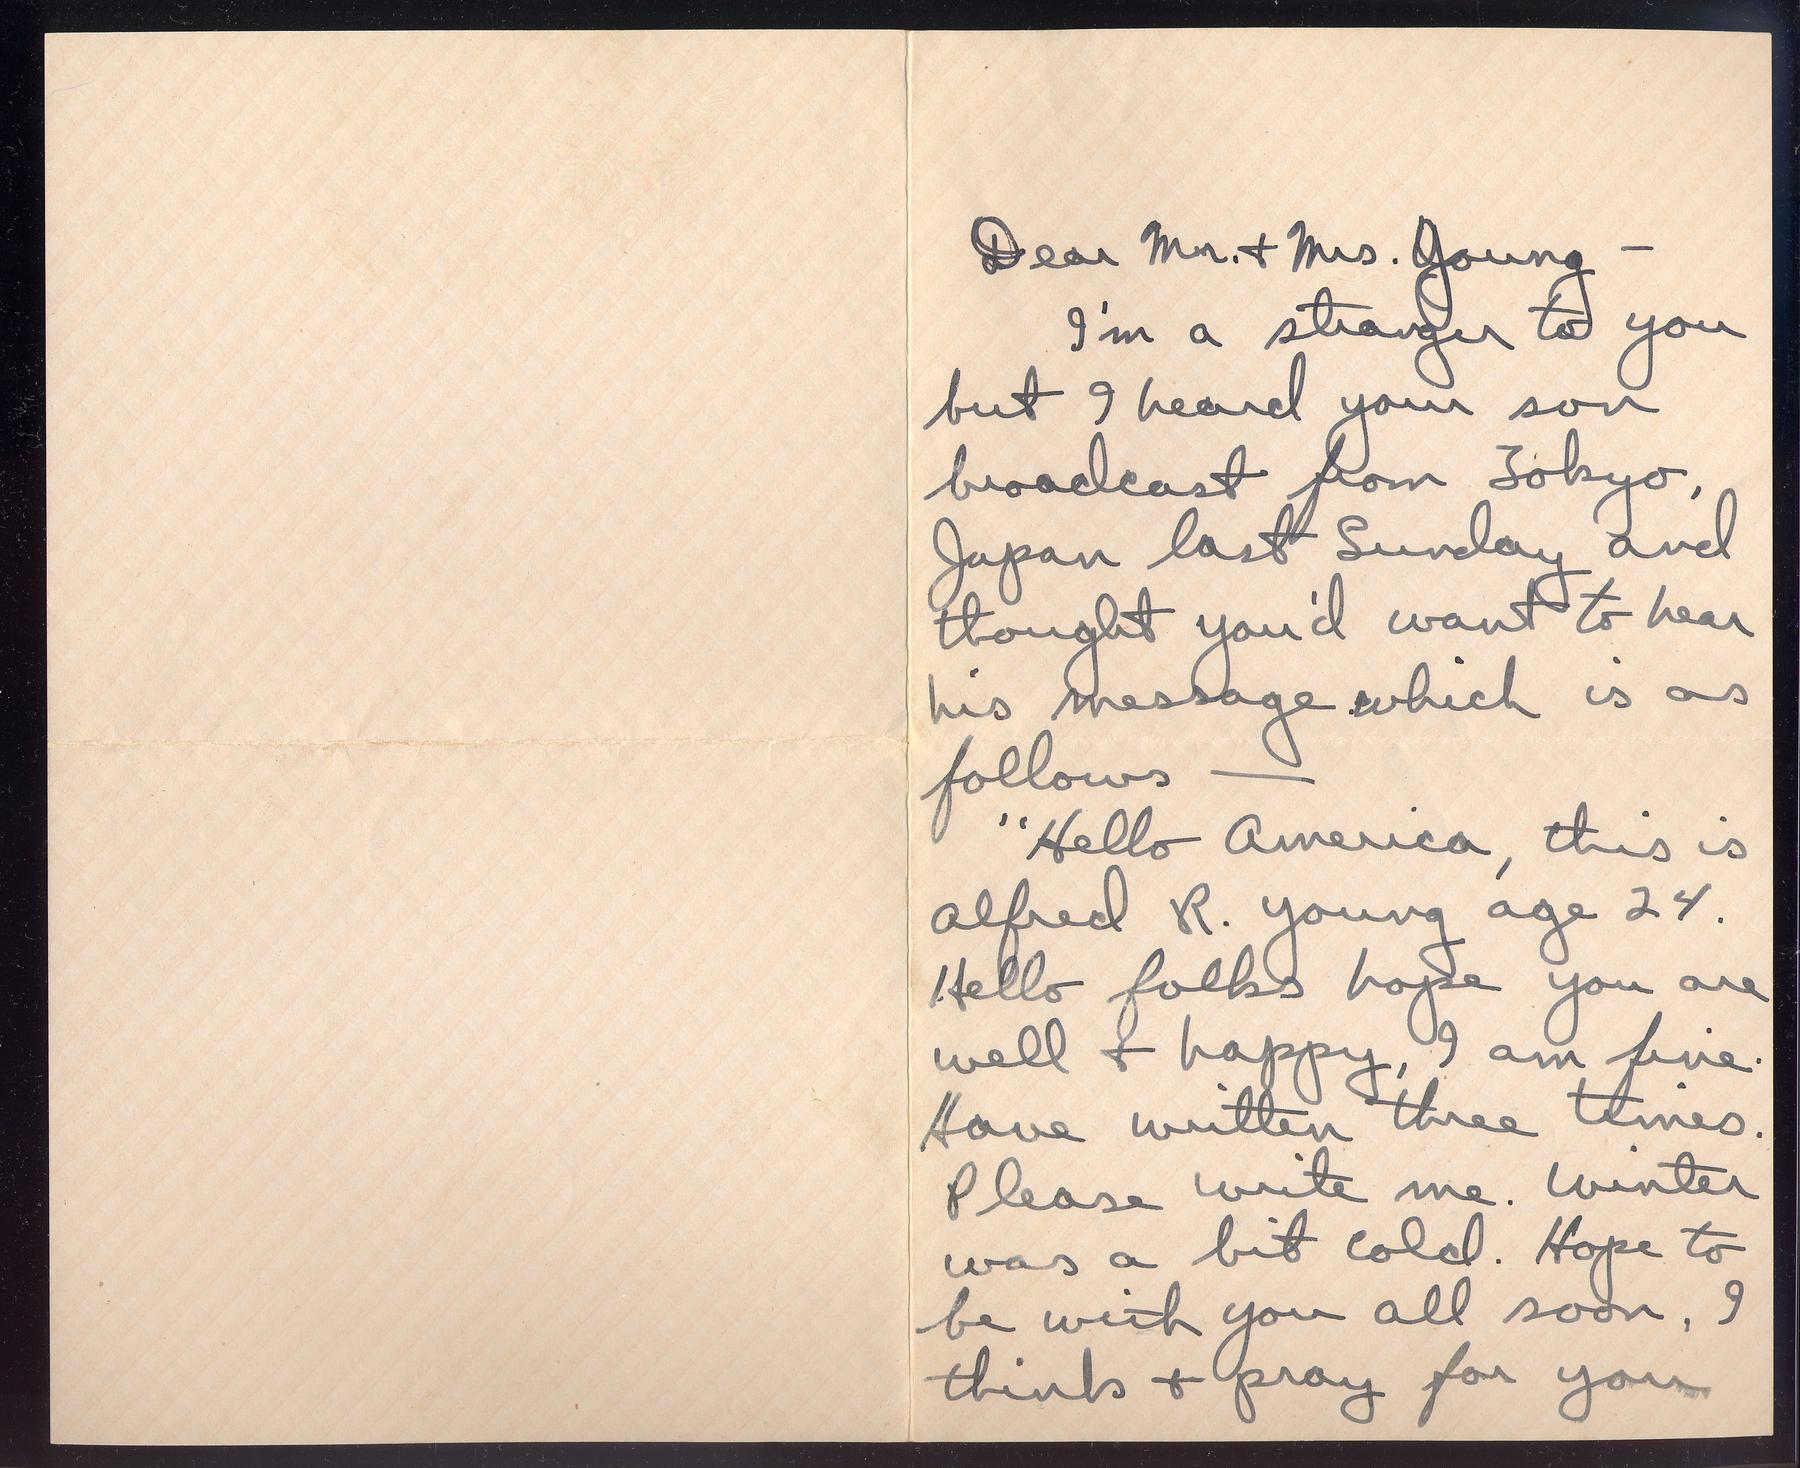 Dear Mr. + Mrs. Young —
I'm a stranger to you
but I heard your son
broadcast from Tokyo,
Japan last Sunday and
thought you'd want to hear
his message which is as
follows —
"Hello America, this is
Alfred R. Young age 24.
Hello folks hope you are
well + happy, I am fine.
Have written three times.
Please write me. Winter
was a bit cold. Hope to
be with you all soon, I
think + pray for you